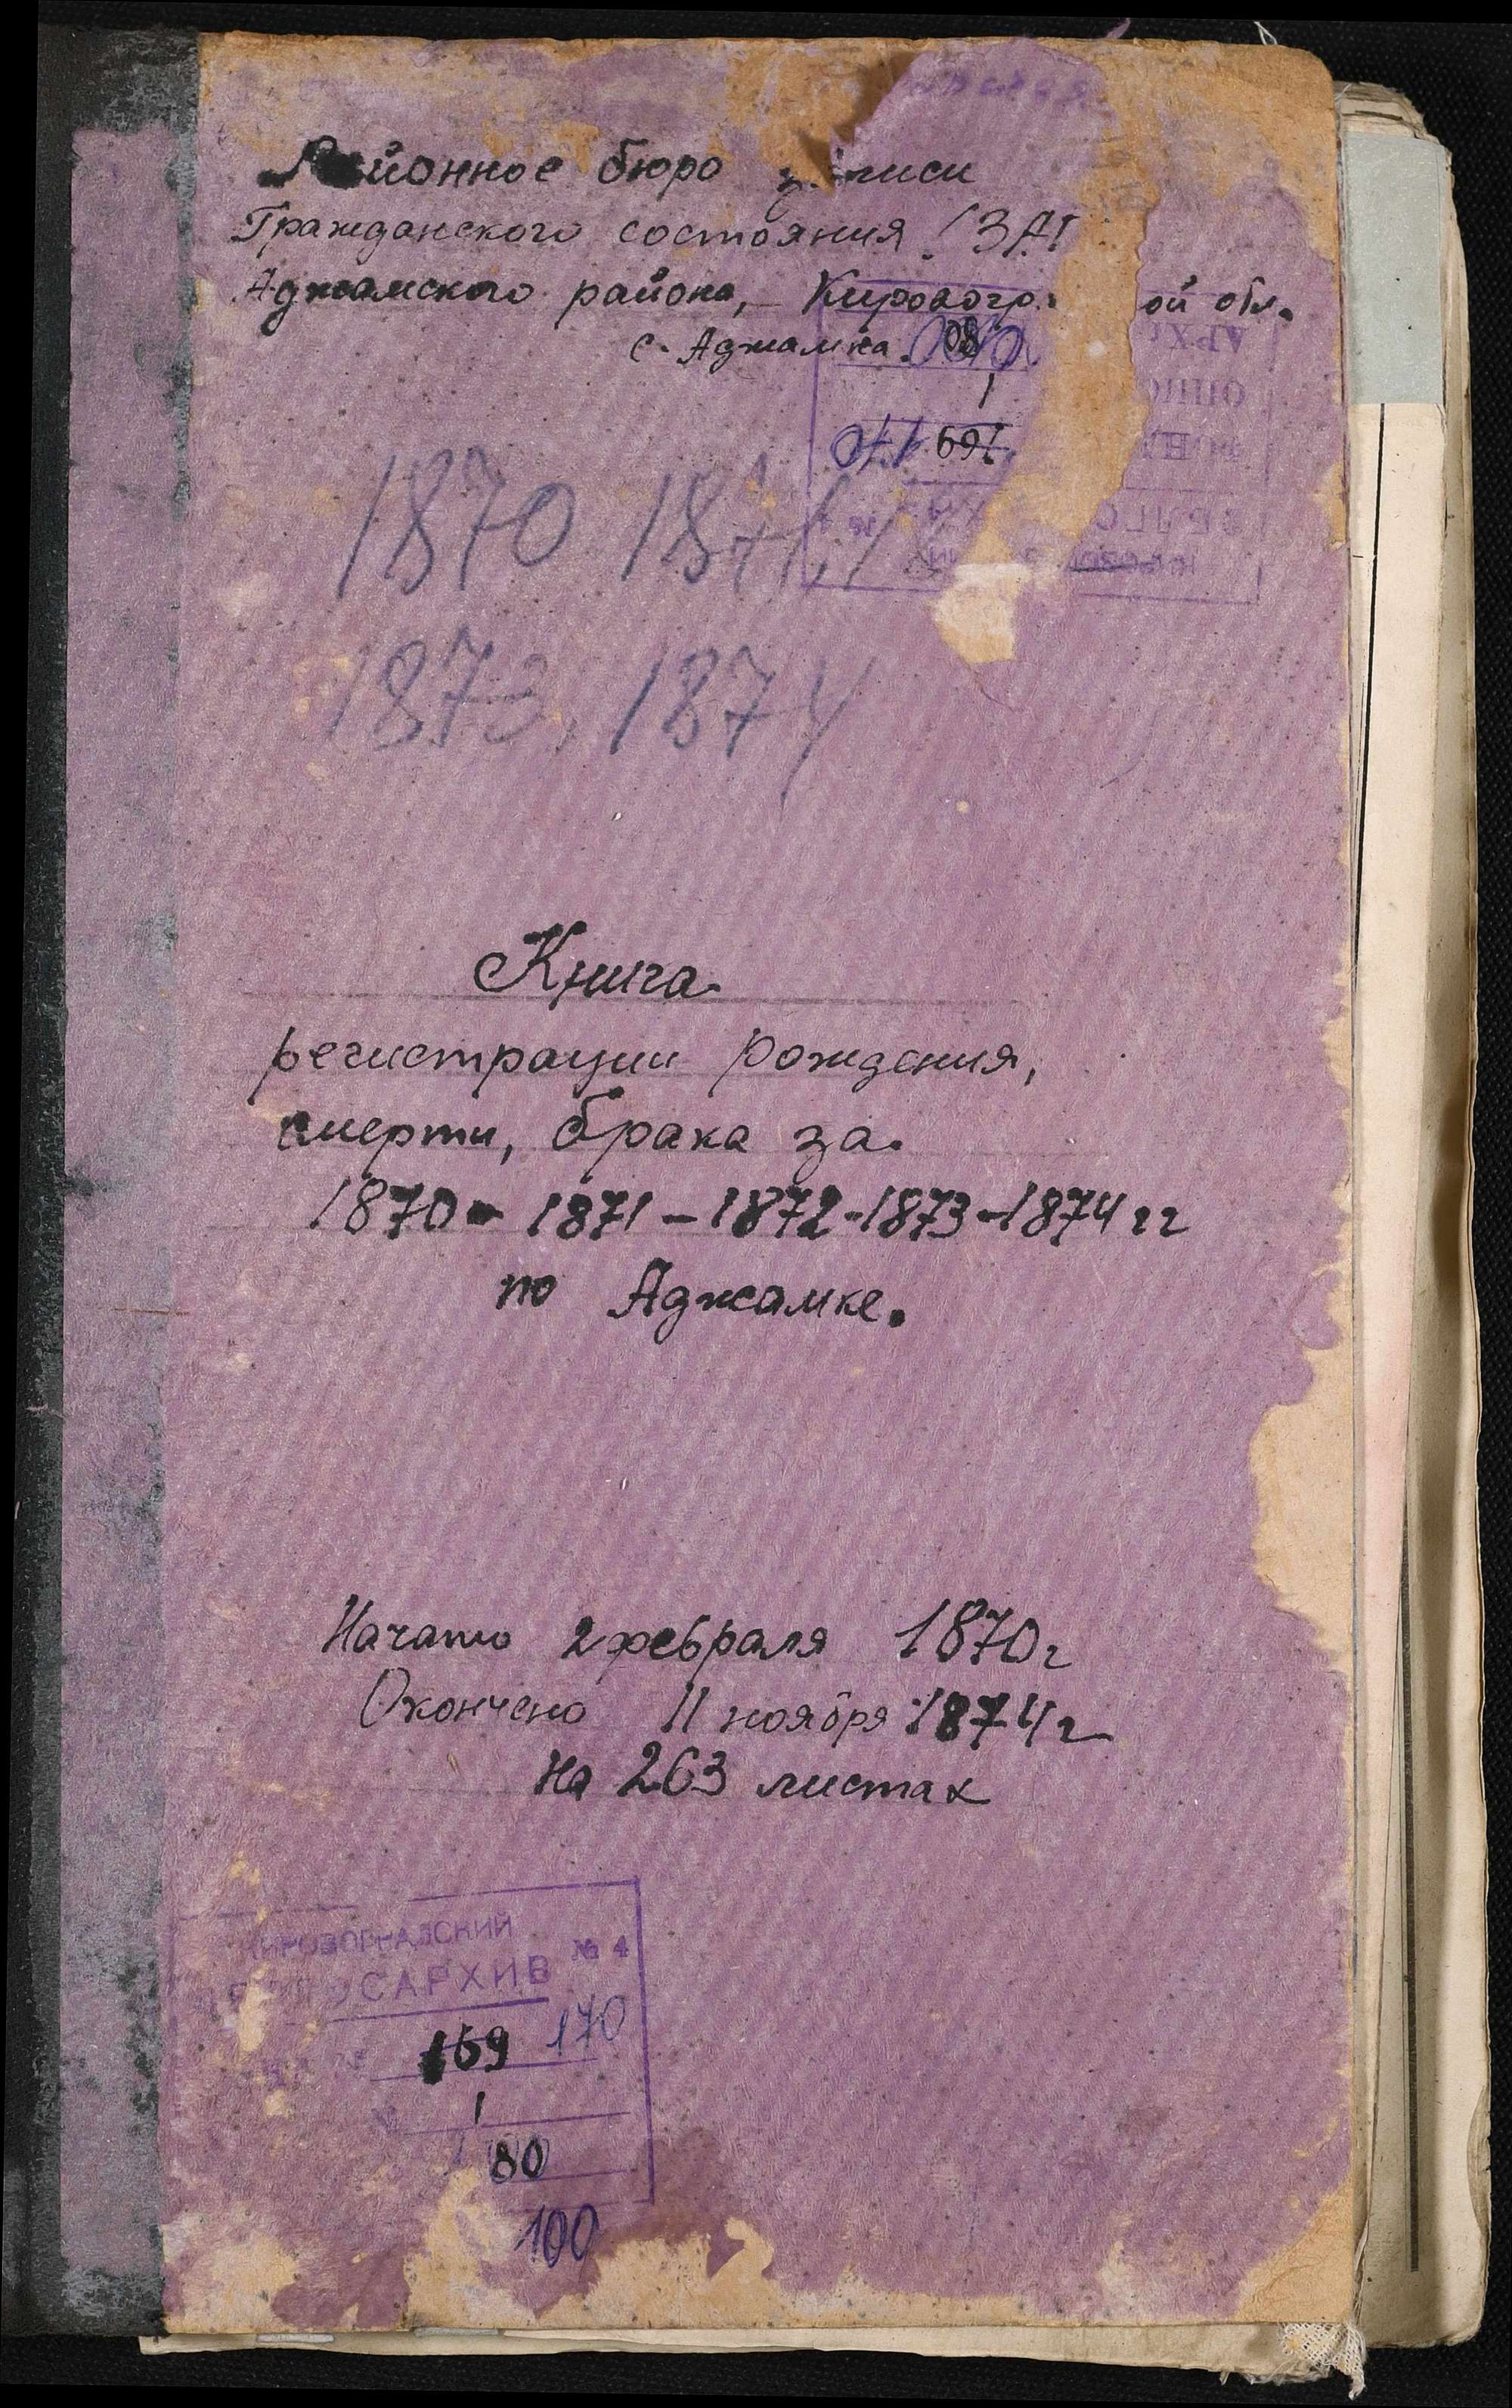 Районное бюро записи
Гражданского состояния (ЗАГ
Аджамского района, Кировогр. ой обл.
с. Аджамка.
80
1
169
170
1870 1871,
1873, 1874
Книга
регистрации рождения,
смерти, брака за
1870 - 1871 - 1872 - 1873 - 1874 гг
по Аджамке.
Начато 2 февраля 1870 г
Окончено 11 ноября 1874 г
на 263 листах
КИРОВОГРАДСКИЙ
ОСАРХИВ № 4
169 170
1
80
100